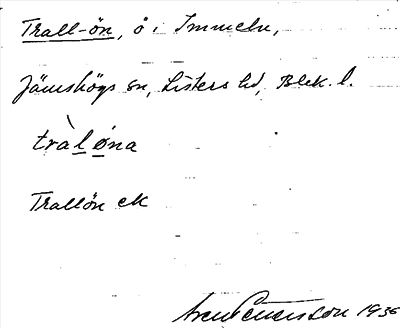 Trall-ön, ö i Immeln,
Jämshögs sn, Listers hd, Blek. l.
tràl ǿna
Trallön ek
1936